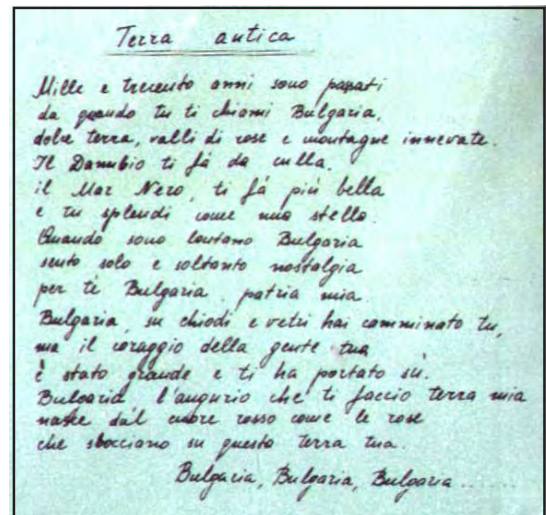 Terra antica
Mille e trecento anni sono passati
da quando tu ti chiami Bulgaria,
dolce terra, valli di rose e montagne innevate.
Il Danubio ti fá da culla.
il Mar Nero, ti fá piú bella
e tu splendi come una stella.
Quando sono lontano Bulgaria
sento solo e soltanto nostalgia
per té Bulgaria, patria mia.
Bulgaria, su chiodi e vetri hai camminato tu,
ma il coraggio della gente tua
é stato grande e ti ha portato sú.
Bulgaria l'augurio che ti faccio terra mia
nasce dal cuore rosso come le rose
che sbocciano su questa terra tua.
Bulgaria, Bulgaria, Bulgaria.......